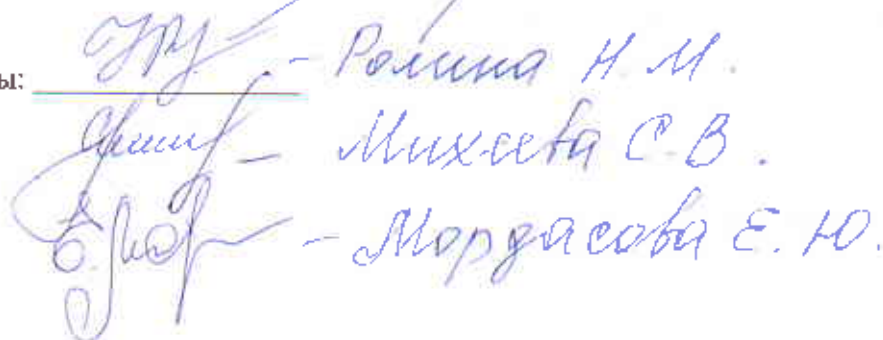 ы: - Ромина Н.М.
- Михеева С.В.
- Мордасова Е.Ю.